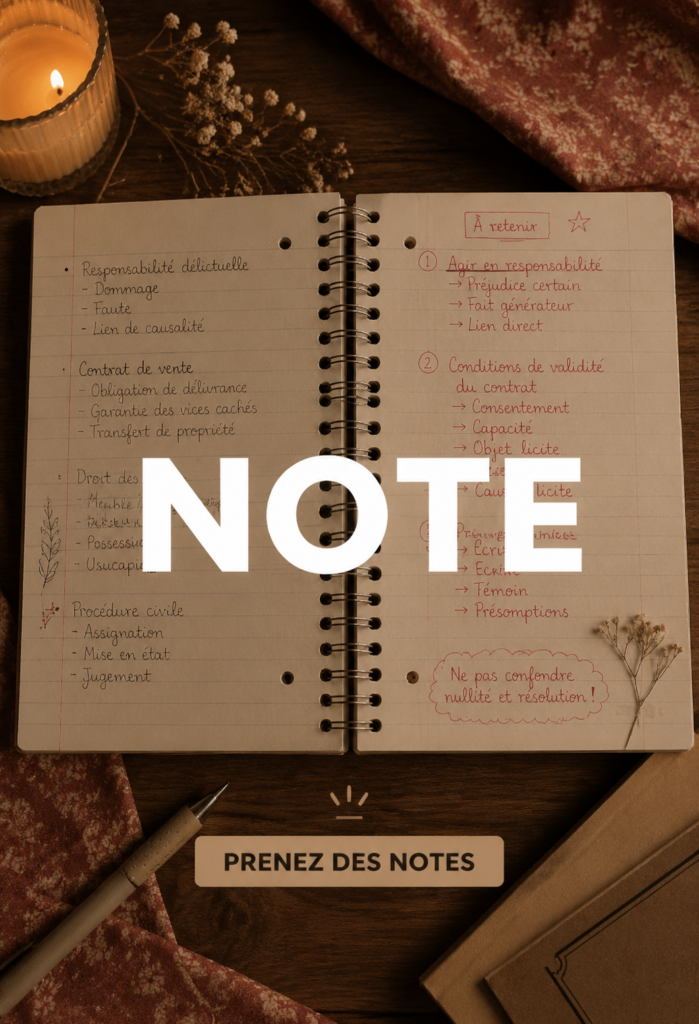 Responsabilité délictuelle
- Dommage
- Faute
- Lien de causalité
Contrat de vente
- Obligation de délivrance
- Garantie des vices cachés
- Transfert de propriété
Droit des
- Possessi
- Usucapi
Procédure civile
- Assignation
- Mise en état
- Jugement
À retenir
1 Agir en responsabilité
→ Préjudice certain
→ Fait générateur
→ Lien direct
2 Conditions de validité
du contrat
→ Consentement
→ Capacité
→ Objet licite
→ licite
→ Témoin
→ Présomptions
Ne pas confondre
nullité et résolution !
NOTE
PRENEZ DES NOTES